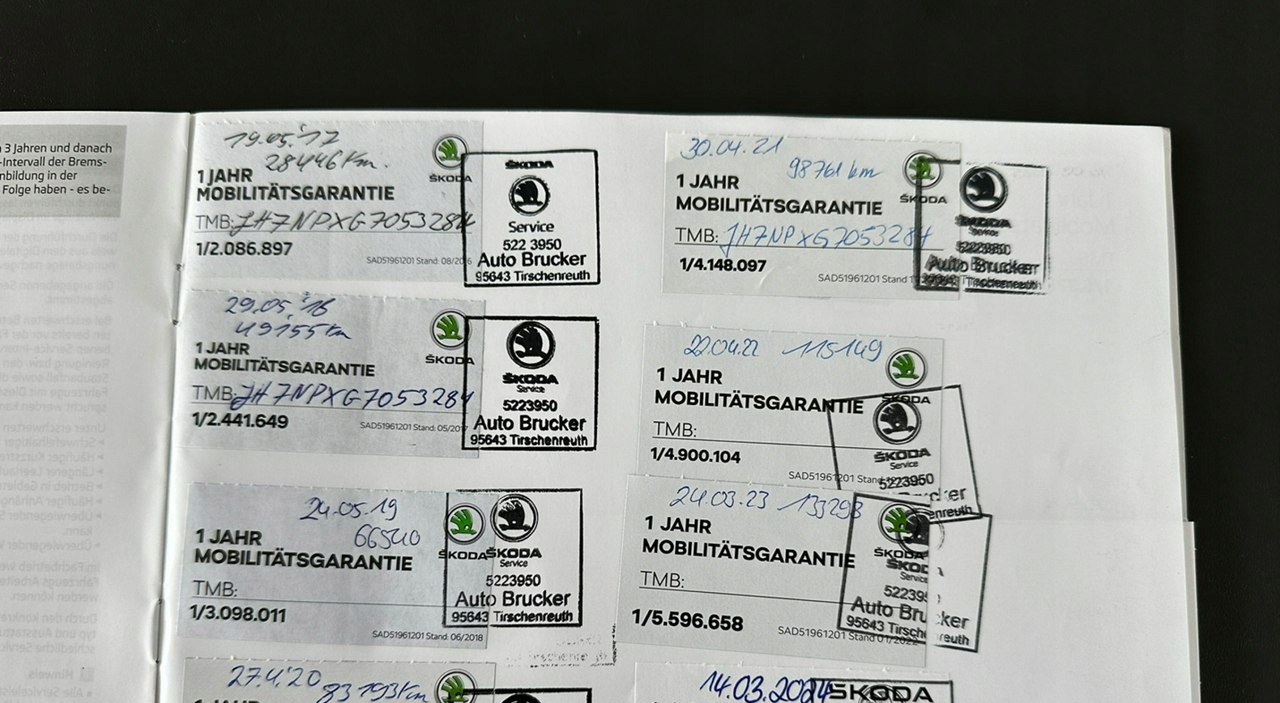 n 3 Jahren und danach
-Intervall der Brems-
nbildung in der
Folge haben - es be-
19.05.'17
28446 Km.
1 JAHR
MOBILITÄTSGARANTIE
ŠKODA
TMB: JH7NPXG7053284
1/2.086.897
SAD51961201 Stand: 08/2016
ŠKODA
Service
522 3950
Auto Brucker
95643 Tirschenreuth
29.05.'18
49155 Km
1 JAHR
MOBILITÄTSGARANTIE
ŠKODA
TMB: JH7NPXG7053284
1/2.441.649
SAD51961201 Stand: 05/201
ŠKODA
Service
5223950
Auto Brucker
95643 Tirschenreuth
24.05.19
66540
1 JAHR
MOBILITÄTSGARANTIE
ŠKODA
TMB:
1/3.098.011
SAD51961201 Stand: 06/2018
ŠKODA
Service
5223950
Auto Brucker
95643 Tirschenreuth
27.4.'20 83193 Km
ŠKODA
30.04.21
98761 km
1 JAHR
MOBILITÄTSGARANTIE
ŠKODA
TMB: JH7NPXG7053284
1/4.148.097
SAD51961201 Stand
ŠKODA
Service
5223950
Auto Brucker
Tirschenreuth
22.04.22 115149
1 JAHR
MOBILITÄTSGARANTIE
ŠKODA
TMB:
1/4.900.104
SAD51961201 Stand
ŠKODA
Service
5223950
cker
enreuth
24.03.23 133293
1 JAHR
MOBILITÄTSGARANTIE
ŠKODA
TMB:
1/5.596.658
SAD51961201 Stand 01/2022
ŠKOD
Service
52239
Auto Brucker
95643 Tirschenreuth
14.03.2024
ŠKODA